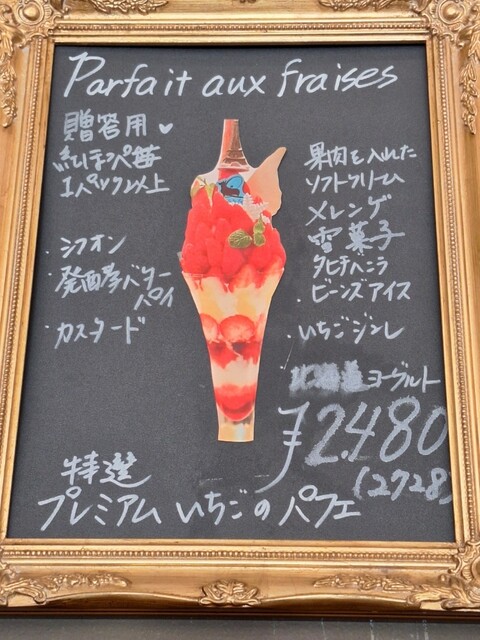 Parfait aux fraises
贈答用♥
紅ほっぺ苺
1パック以上
・シフオン
・発酵バター
パイ
・カスタード
果肉を入れた
ソフトクリーム
メレンゲ
雪菓子
タヒチバニラ
ビーンズアイス
・いちごジュレ
北海道ヨーグルト
¥2.480
(2728)
特選
プレミアムいちごのパフェ